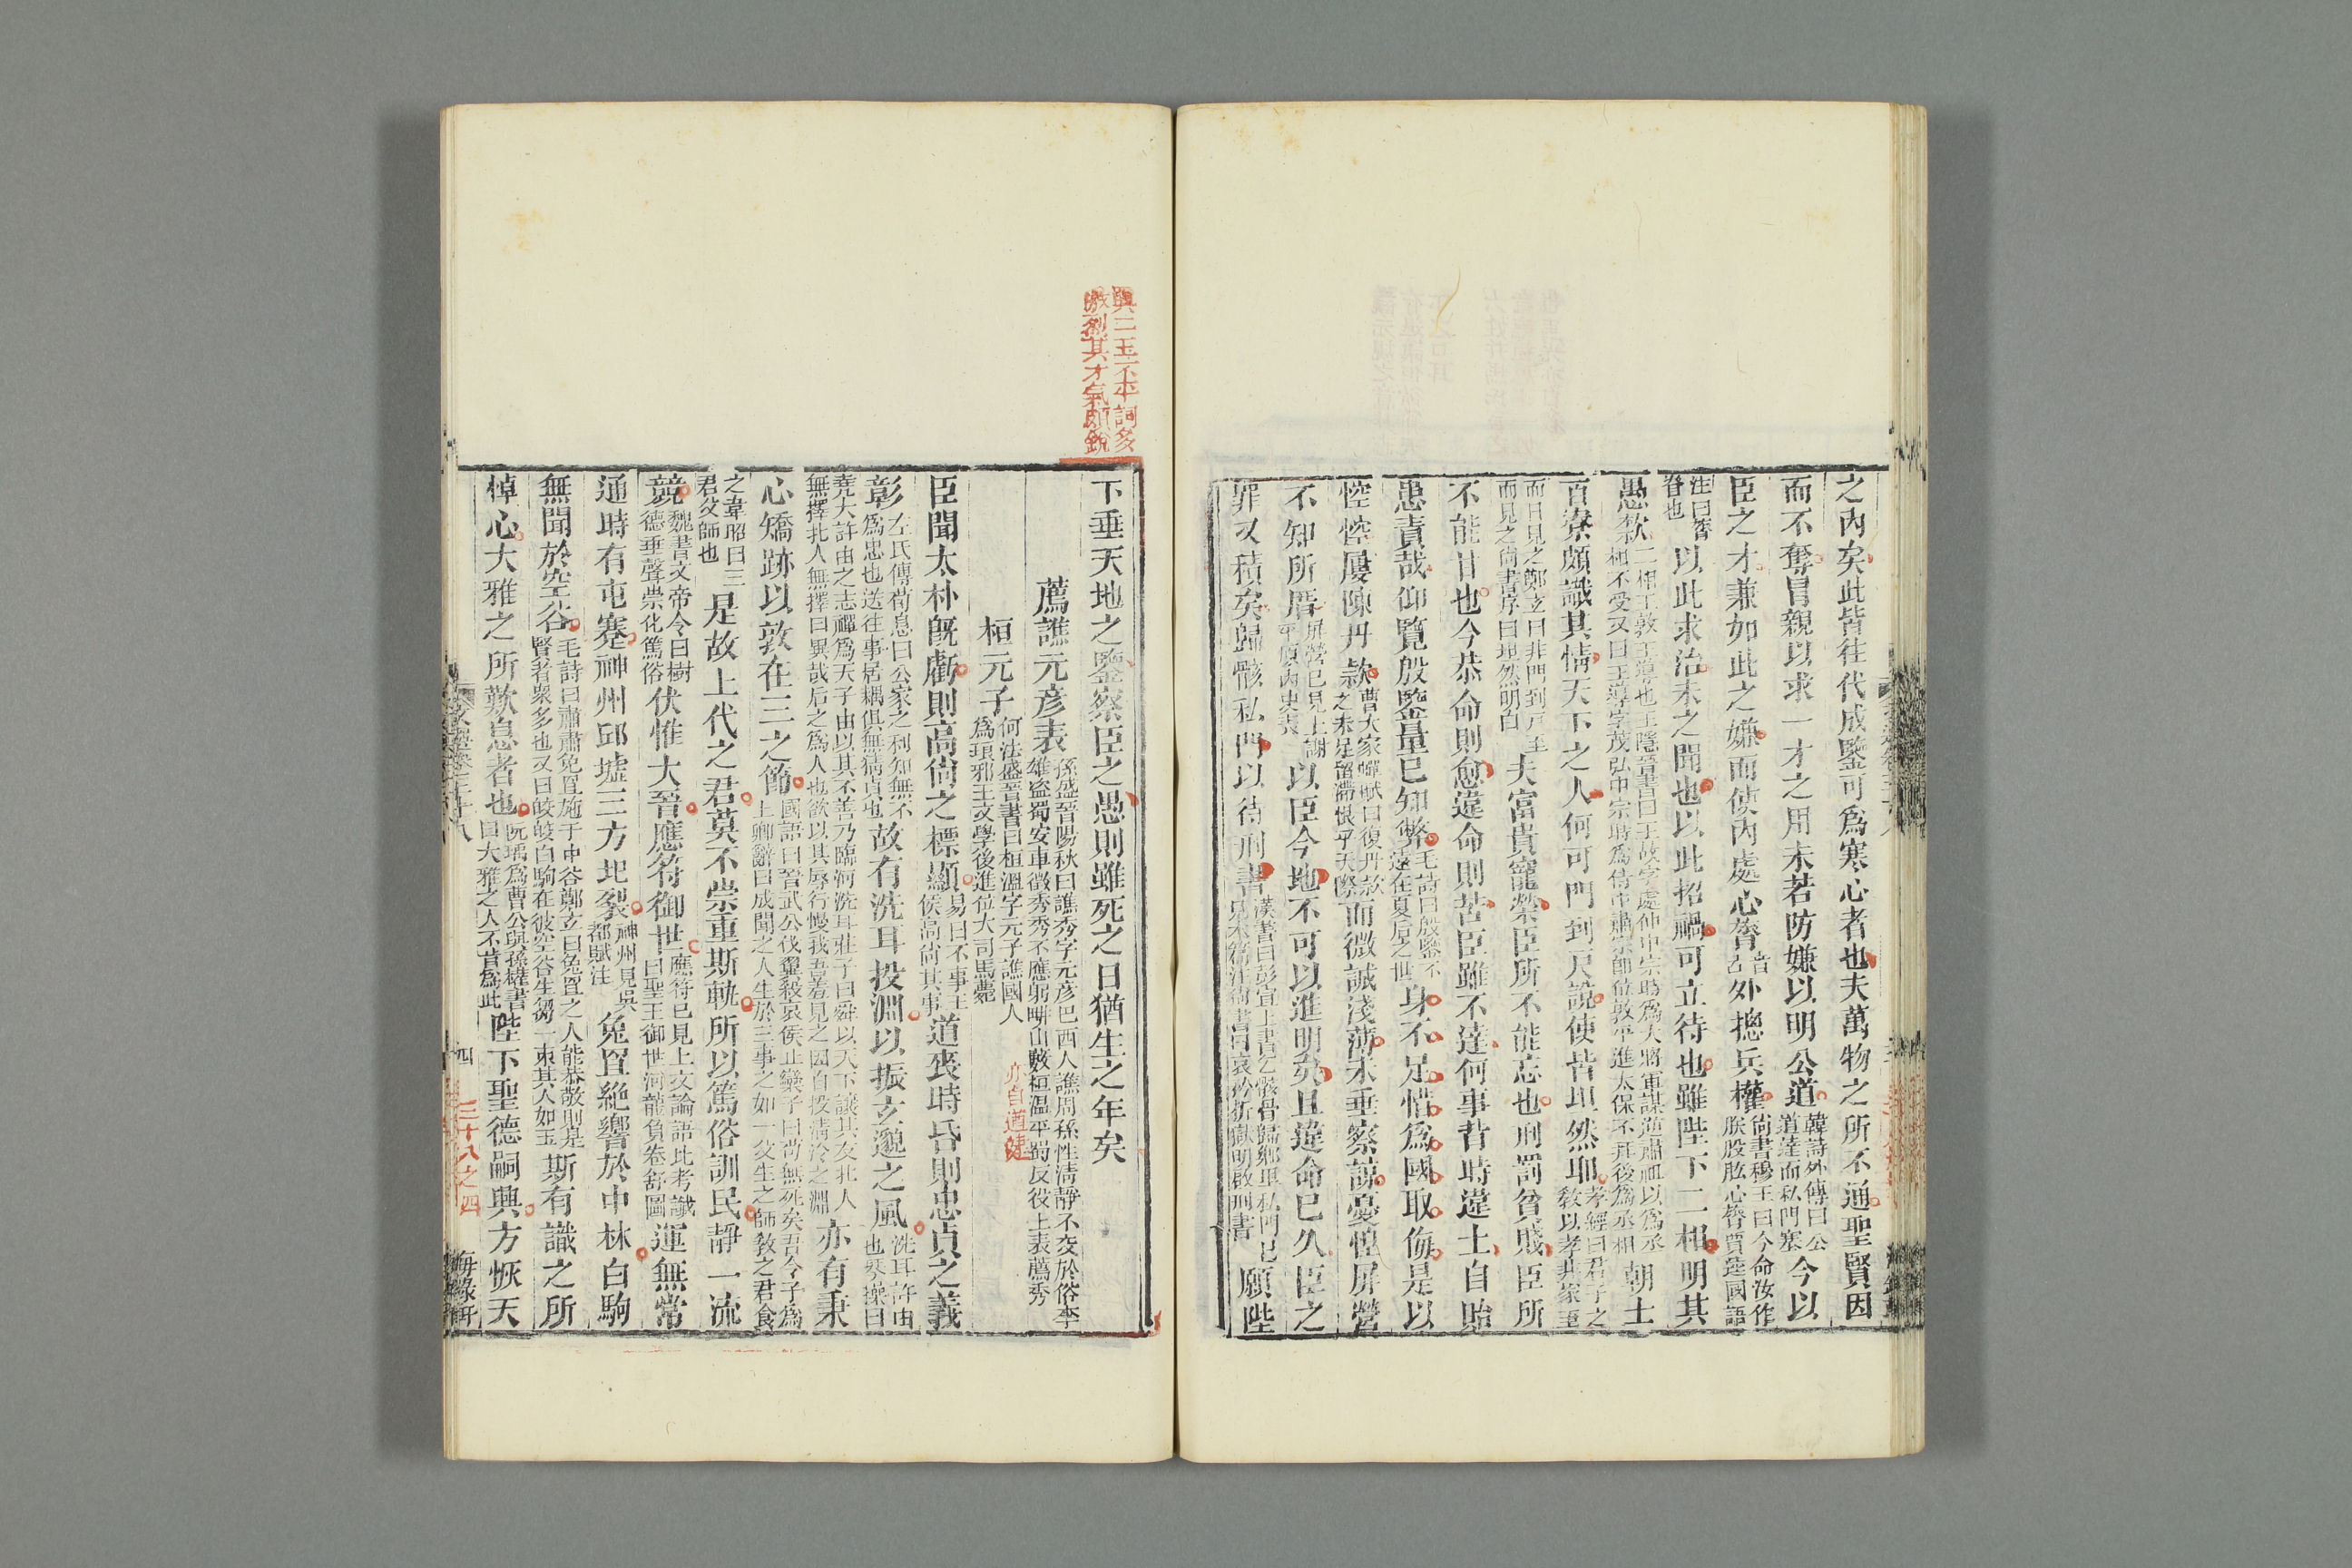 之內矣此皆往代成鑒可爲寒心者也夫萬物之所不通聖賢因
而不奪冒親以求一才之用未若防嫌以明公道韓詩外傳曰公道達而私門塞今以
臣之才兼如此之嫌而使內處心膂音呂外摠兵權尚書穆王曰今命汝作朕股肱心膂賈逵國語
注曰膂脊也以此求治未之聞也以此招禍可立待也雖陛下二相明其
愚款二相王敦王導也王隱晉書曰王敦字處仲中宗時爲大將軍謀逆肅祖以爲丞相不受又曰王導字茂弘中宗時爲侍中肅宗師位敦平進太保不拜後爲丞相朝士
百寮頗識其情天下之人何可門到戶說使皆坦然耶孝經曰君子之教以孝非家至
而日見之鄭玄曰非門到戶至而見之尚書序曰坦然明白夫富貴寵榮臣所不能忘也刑罰貧賤臣所
不能甘也今恭命則愈違命則苦臣雖不達何事背時違上自貽
患責哉仰覽殷鑒量已知弊毛詩曰殷鑒不遠在夏后之世身不足惜爲國取侮是以
悾悾屢陳丹款曹大家蟬賦曰復丹款之未足留滯恨乎天際而微誠淺薄未垂察諒憂惶屏營
不知所厝屏營已見上謝平原內史表以臣今地不可以進明矣且違命已久臣之
罪又積矣歸骸私門以待刑書漢書曰彭宣上書乞骸骨歸鄉里私門已見求衛注尚書曰哀矜折獄明啟刑書願陛
下垂天地之鑒察臣之愚則雖死之日猶生之年矣
與二王不平詞多激劌其才氣頗銳
薦譙元彥表孫盛晉陽秋曰譙秀字元彥巴西人譙周孫性清靜不交於俗李雄盜蜀安車徵秀秀不應躬耕山藪桓溫平蜀反役上表薦秀
桓元子何法盛晉書曰桓溫字元子譙國人爲琅邪王文學後進位大司馬薨
亦自遒健
臣聞太朴旣虧則高尚之標顯易曰不事王侯高尚其事道喪時昏則忠貞之義
彰左氏傳荀息曰公家之利知無不爲忠也送往事居耦俱無猜貞也故有洗耳投淵以振玄邈之風洗耳許由也琴操曰
堯大許由之志禪爲天子由以其不善乃臨河洗耳莊子曰舜以天下讓其友北人無擇北人無擇曰異哉后之爲人也欲以其辱行慢我吾羞見之因自投清冷之淵亦有秉
心矯跡以敦在三之節國語曰晉武公伐翼殺哀侯止欒子曰苟無死矣吾令子爲上卿辭曰成聞之人生於三事之如一父生之師教之君食
之韋昭曰三君父師也是故上代之君莫不崇重斯軌所以篤俗訓民靜一流
競魏書文帝令曰樹德垂聲崇化篤俗伏惟大晉應符御世應符已見上文論語比考讖曰聖王御世河龍負卷舒圖運無常
通時有屯蹇神州邱墟三方圮裂神州見吳都賦注兔罝絕響於中林白駒
無聞於空谷毛詩曰肅肅兔罝施于中谷鄭玄曰兔罝之人能恭敬則是賢者衆多也又曰皎皎白駒在彼空谷生芻一束其人如玉斯有識之所
悼心大雅之所歎息者也阮瑀爲曹公與孫權書曰大雅之人不肯爲此陛下聖德嗣興方恢天
文選卷三十八
四
三十八之四
海錄軒